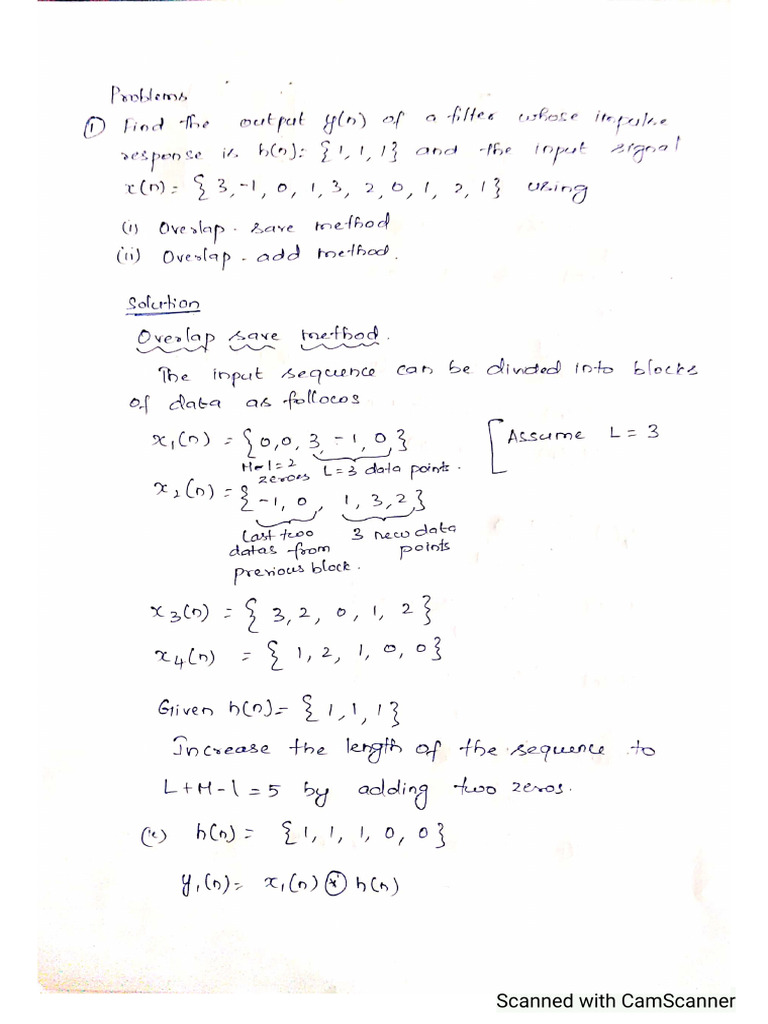 Problems
① Find the output y(n) of a filter whose impulse
response is h(n): {1, 1, 1} and the input signal
x(n) = {3, -1, 0, 1, 3, 2, 0, 1, 2, 1} using
(i) Overlap - save method
(ii) Overlap - add method.
Solution
Overlap save method.
The input sequence can be divided into blocks
of data as follows
x₁(n) = {0, 0, 3, -1, 0,} [Assume L = 3
M-1=2 zeroes L = 3 data points.
x₂(n) = {-1, 0, 1, 3, 2}
Last two 3 new data
datas from points
previous block.
x₃(n) = {3, 2, 0, 1, 2}
x₄(n) = {1, 2, 1, 0, 0}
Given h(n) = {1, 1, 1}
Increase the length of the sequence to
L+M-1 = 5 by adding two zeros.
(ie) h(n) = {1, 1, 1, 0, 0}
y₁(n) = x₁(n) ⊛ h(n)
Scanned with CamScanner